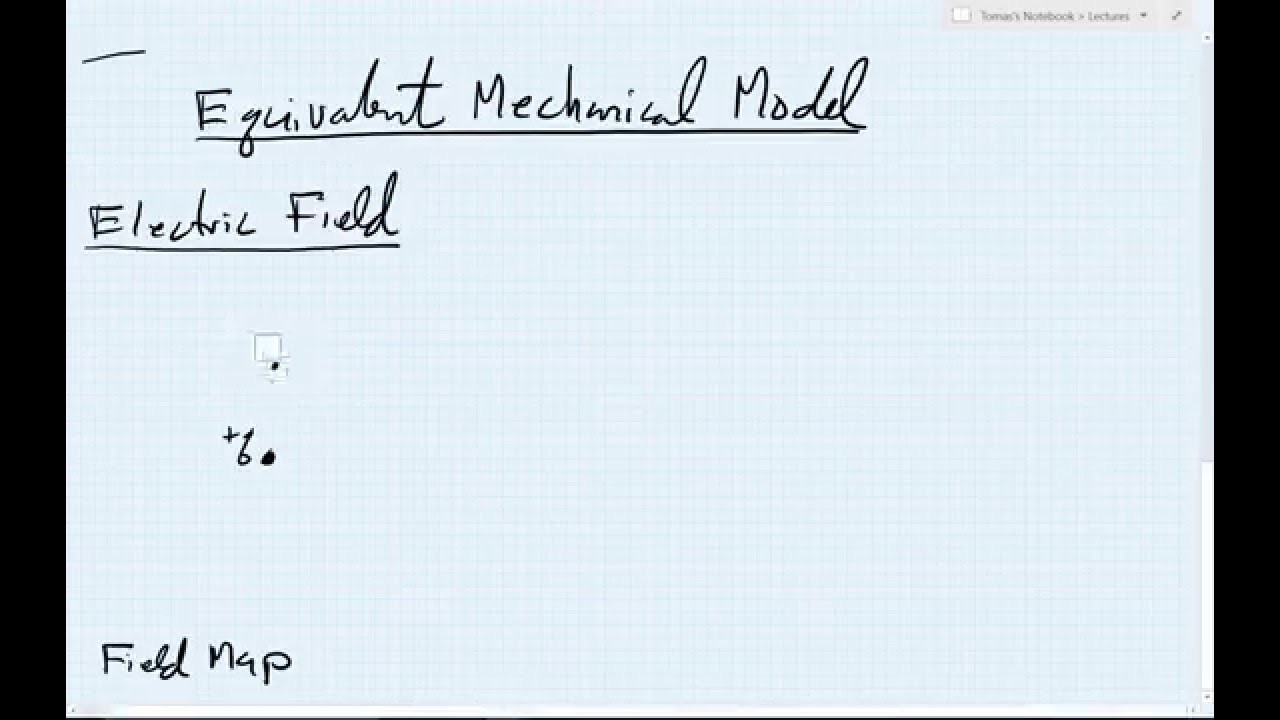 Tomas's Notebook > Lectures
Equivalent Mechanical Model
Electric Field
+6
Field Map